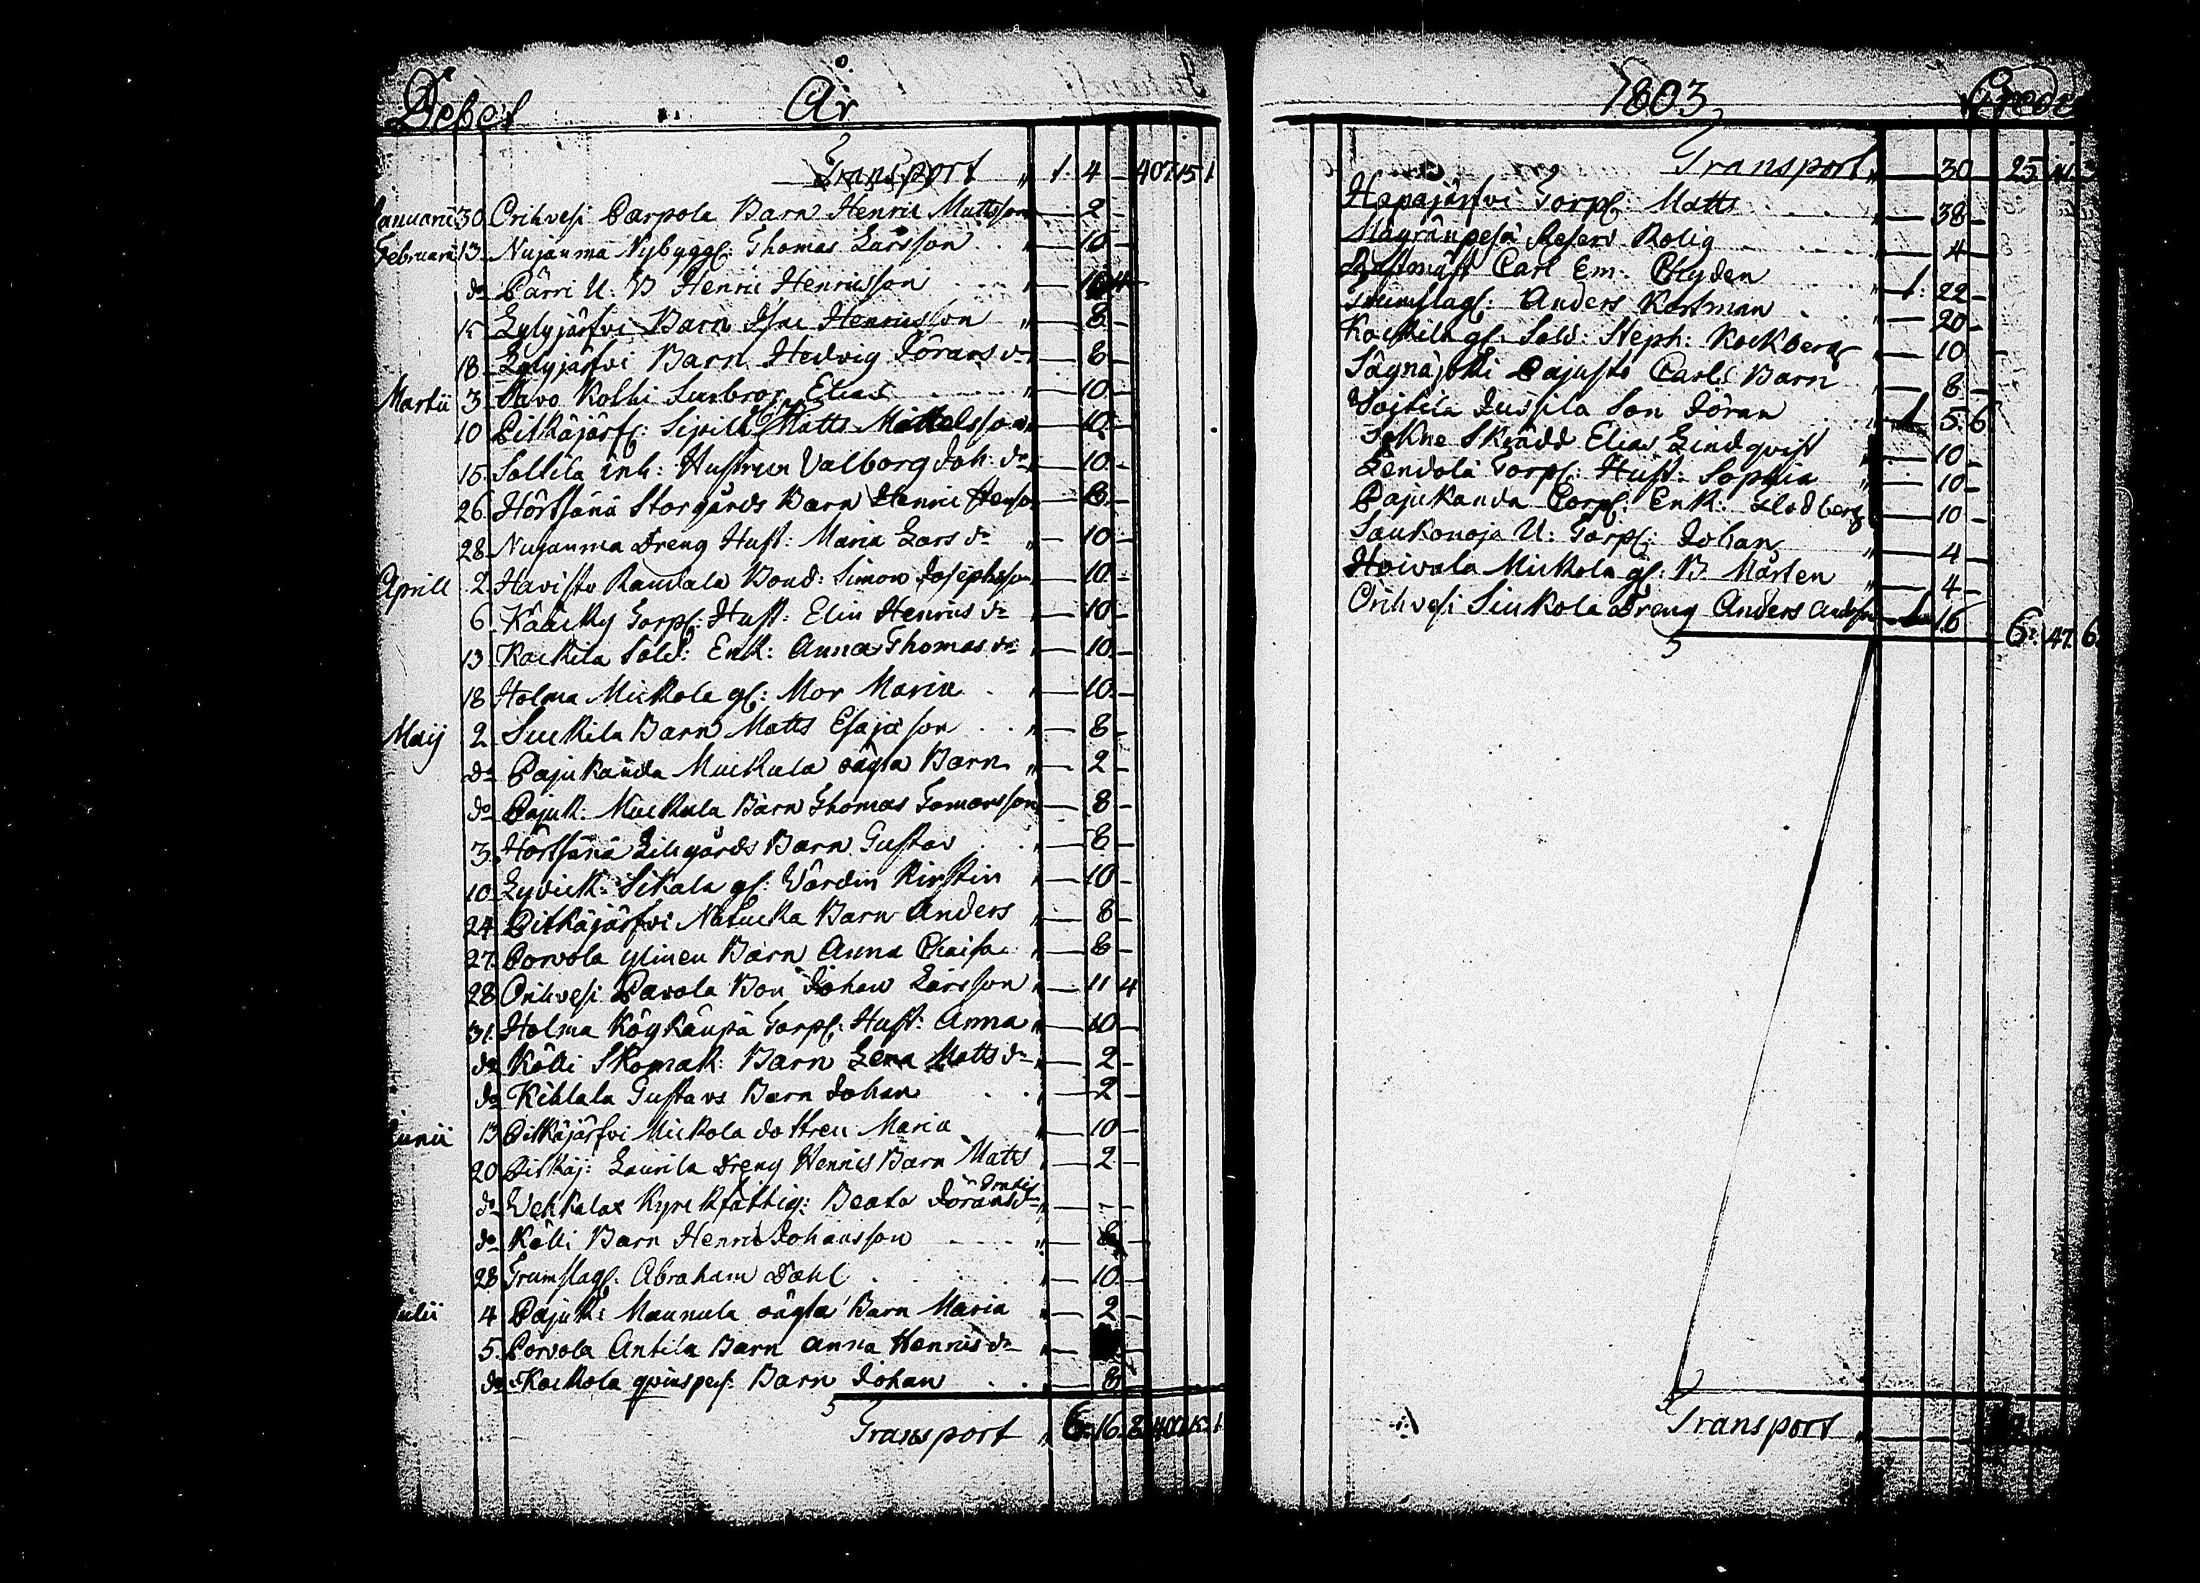 Debet År
Transport " 1. 4 — 407. 15. 1
Januarii 30. Orihvesi Parpola Barn Henric Mattsson — 2 —
Februarii 13. Nujanma Nybyggs: Thomas Larsson " — 10 —
do Pärri U: B Henric Henricsson
15. Lylyjärfvi Barn Isac Henricsson " — 8 —
18. Lylyjärfvi Barn Hedvig Jörans dr — 8 —
Martii 3. Kolhi Elias " — 10 —
10. Pitkäjärf: Sipilä Matts Mickelsson — 10 —
15. Soltila inh: Hustrun Valborg Joh: dr — 10 —
26. Hörtsänä Storgårds Barn Henric — 8 —
28. Nujanma Dreng Hust: Maria Lars dr " — 10 —
Aprill 2. Havisto Randala Bond: Simon Josephsson — 10 —
6. Torp: Hust: Elin Henrics dr " — 10 —
13. Kockila Sold: Enk: Anna Thomas dr " — 10 —
18. Holma Mickola gl: Mor Maria " — 10 —
Maij 2. Suckila Barn Matts Esajason " — 8 —
do Pajukanda Muckula oägta Barn " — 2 —
do Pajuk: Muckula Barn Thomas — 8 —
3. Hörtsänä Lillgårds Barn Gustav " — 8 —
10. Sikala gl: Värdin Kirstin " — 10 —
24. Pitkäjärfvi Barn Anders " — 8 —
27. Porvola ylinen Barn Anna Caisa " — 8 —
28. Orihvesi Pavola Bon Johan Larsson " — 11 4
31. Holma Torp: Hust: Anna " — 10 —
do Kölli Skomak: Barn Lena Matts dr " — 2 —
do Kihlala Gustavs Barn Johan " — 2 —
Junii 13. Pitkäjärfvi Mickola dottren Maria — 10 —
20. Pitkäj: Laurila Dreng Henrics Barn Matts " — 2 —
do Wehkalax Kyrckfattig: Beata Jörans dr gratis " — - —
do Kölli Barn Henric Johansson " 8 —
28. Trumslag: Abraham Dahl " — 10 —
Julii 4. Pajuk: Maunula oägta Barn Maria " — 2 —
5. Porvola Antila Barn Anna Henrics dr " —
do Kockola qvinspers: Barn Johan " — 8
Transport " 6. 16. 8. 407. 15. 1
1803 Credit
Transport " — 30 — 25.
Hapajärfvi Torp: Matts " — 38 —
Reserv Rolig " — 4 —
Carl Em: Chyden " 1: 22 —
Trumslag: Anders Kortman " — 20 —
Kockila gl: Sold: Steph: Kockberg — 10 —
Pajusto Carls Barn " — 8 —
Voitila Jussila Son Jöran " 5: 6
Skrädd Elias Lindqvist " — 10 —
Lendola Torp: Hust: Sophia " — 10 —
Pajukanda Torp: Enk: — 10 —
Saukonoja U: Torp: Johan " — 4 —
Hoivala Mickola gl: B. Mårten " — 4 —
Orihvesi Siukola Dreng Anders 16 6: 47. 6.
Transport "